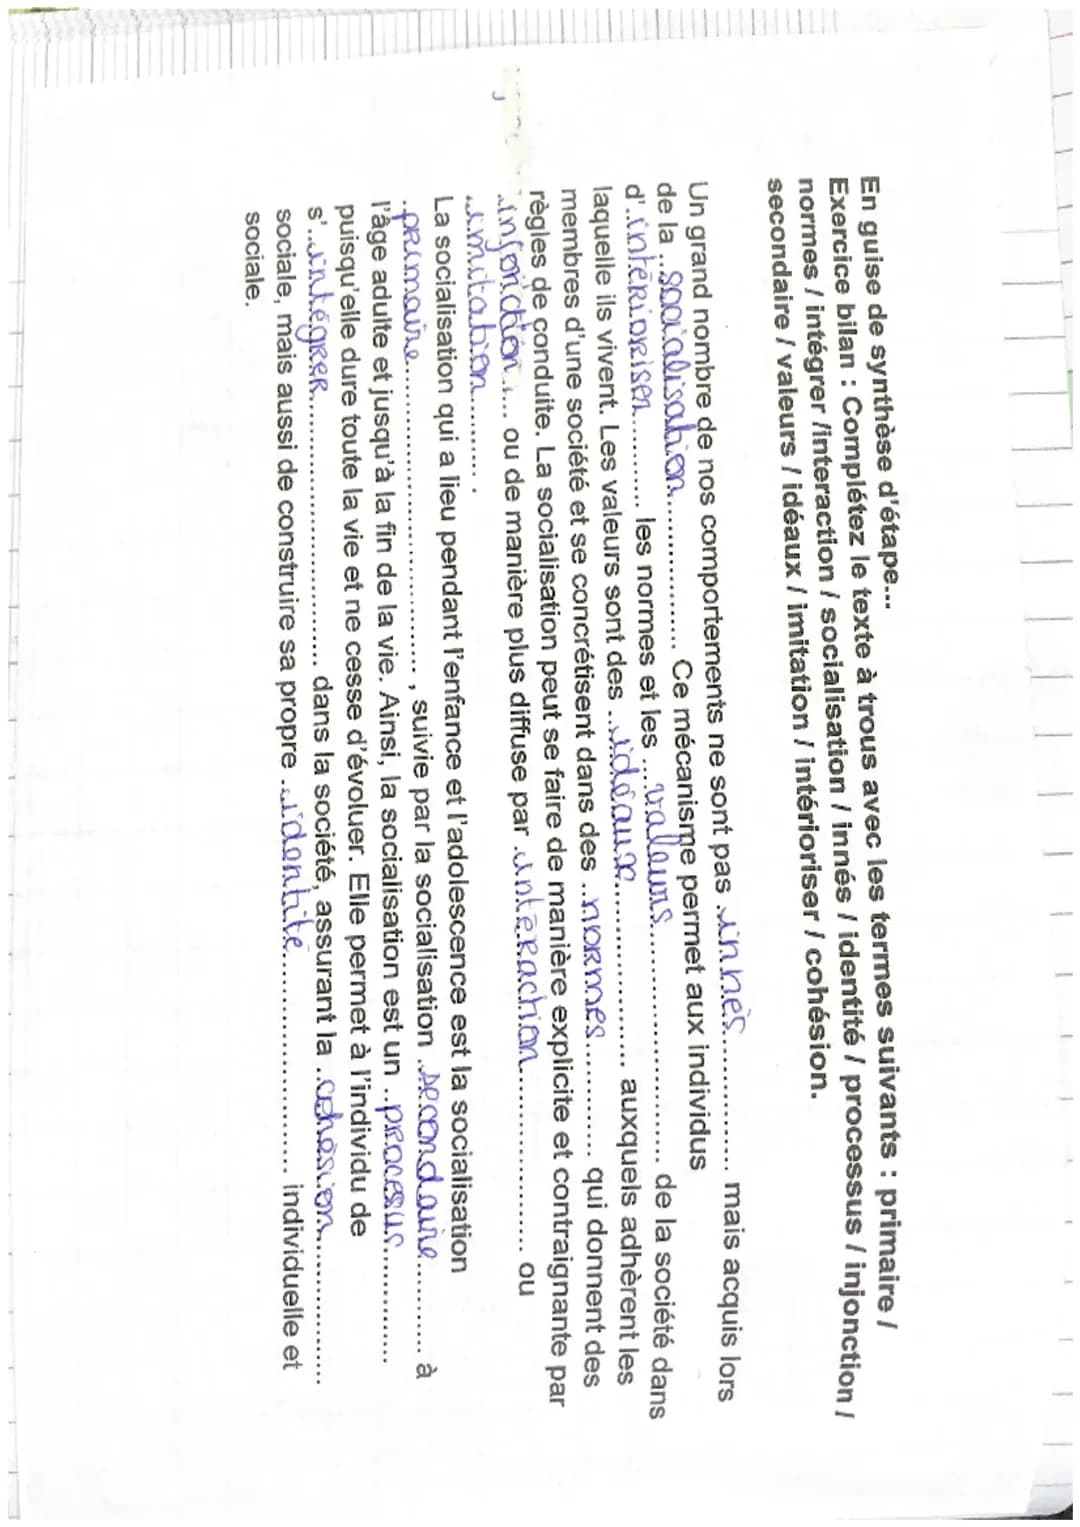 En guise de synthèse d'étape...
Exercice bilan : Complétez le texte à trous avec les termes suivants : primaire /
normes / intégrer /interaction / socialisation / innés / identité / processus / injonction /
secondaire / valeurs / idéaux / imitation / intérioriser / cohésion.
Un grand nombre de nos comportements ne sont pas ..innés............ mais acquis lors
de la ...socialisation............... Ce mécanisme permet aux individus
d'..intérioriser.......... les normes et les ....valeurs......................... de la société dans
laquelle ils vivent. Les valeurs sont des ...idéaux..................... auxquels adhèrent les
membres d'une société et se concrétisent dans des ...normes........... qui donnent des
règles de conduite. La socialisation peut se faire de manière explicite et contraignante par
..injonction..... ou de manière plus diffuse par .intéraction..................... ou
...imitation......... .
La socialisation qui a lieu pendant l'enfance et l'adolescence est la socialisation
..primaire............................... , suivie par la socialisation ..secondaire........... à
l'âge adulte et jusqu'à la fin de la vie. Ainsi, la socialisation est un ..procesus............
puisqu'elle dure toute la vie et ne cesse d'évoluer. Elle permet à l'individu de
s'...intégrer............................ dans la société, assurant la .cohésion................
sociale, mais aussi de construire sa propre ..identité....................... individuelle et
sociale.